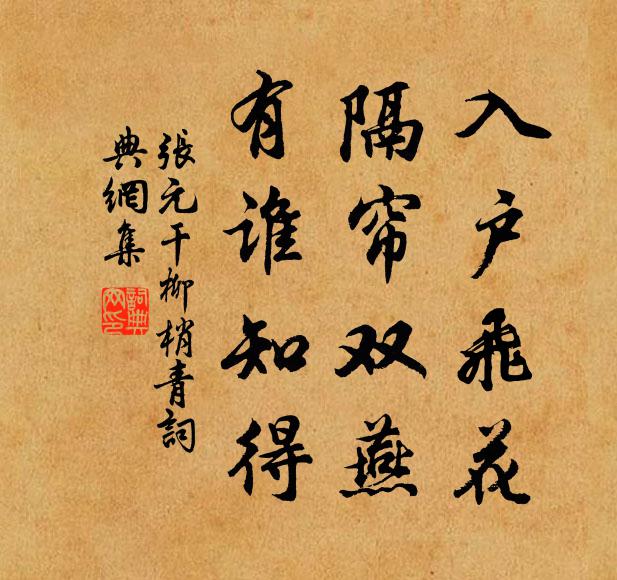 入户飞花
隔帘双燕
有谁知得
張元干柳梢青詞
典網集
詞典
网印